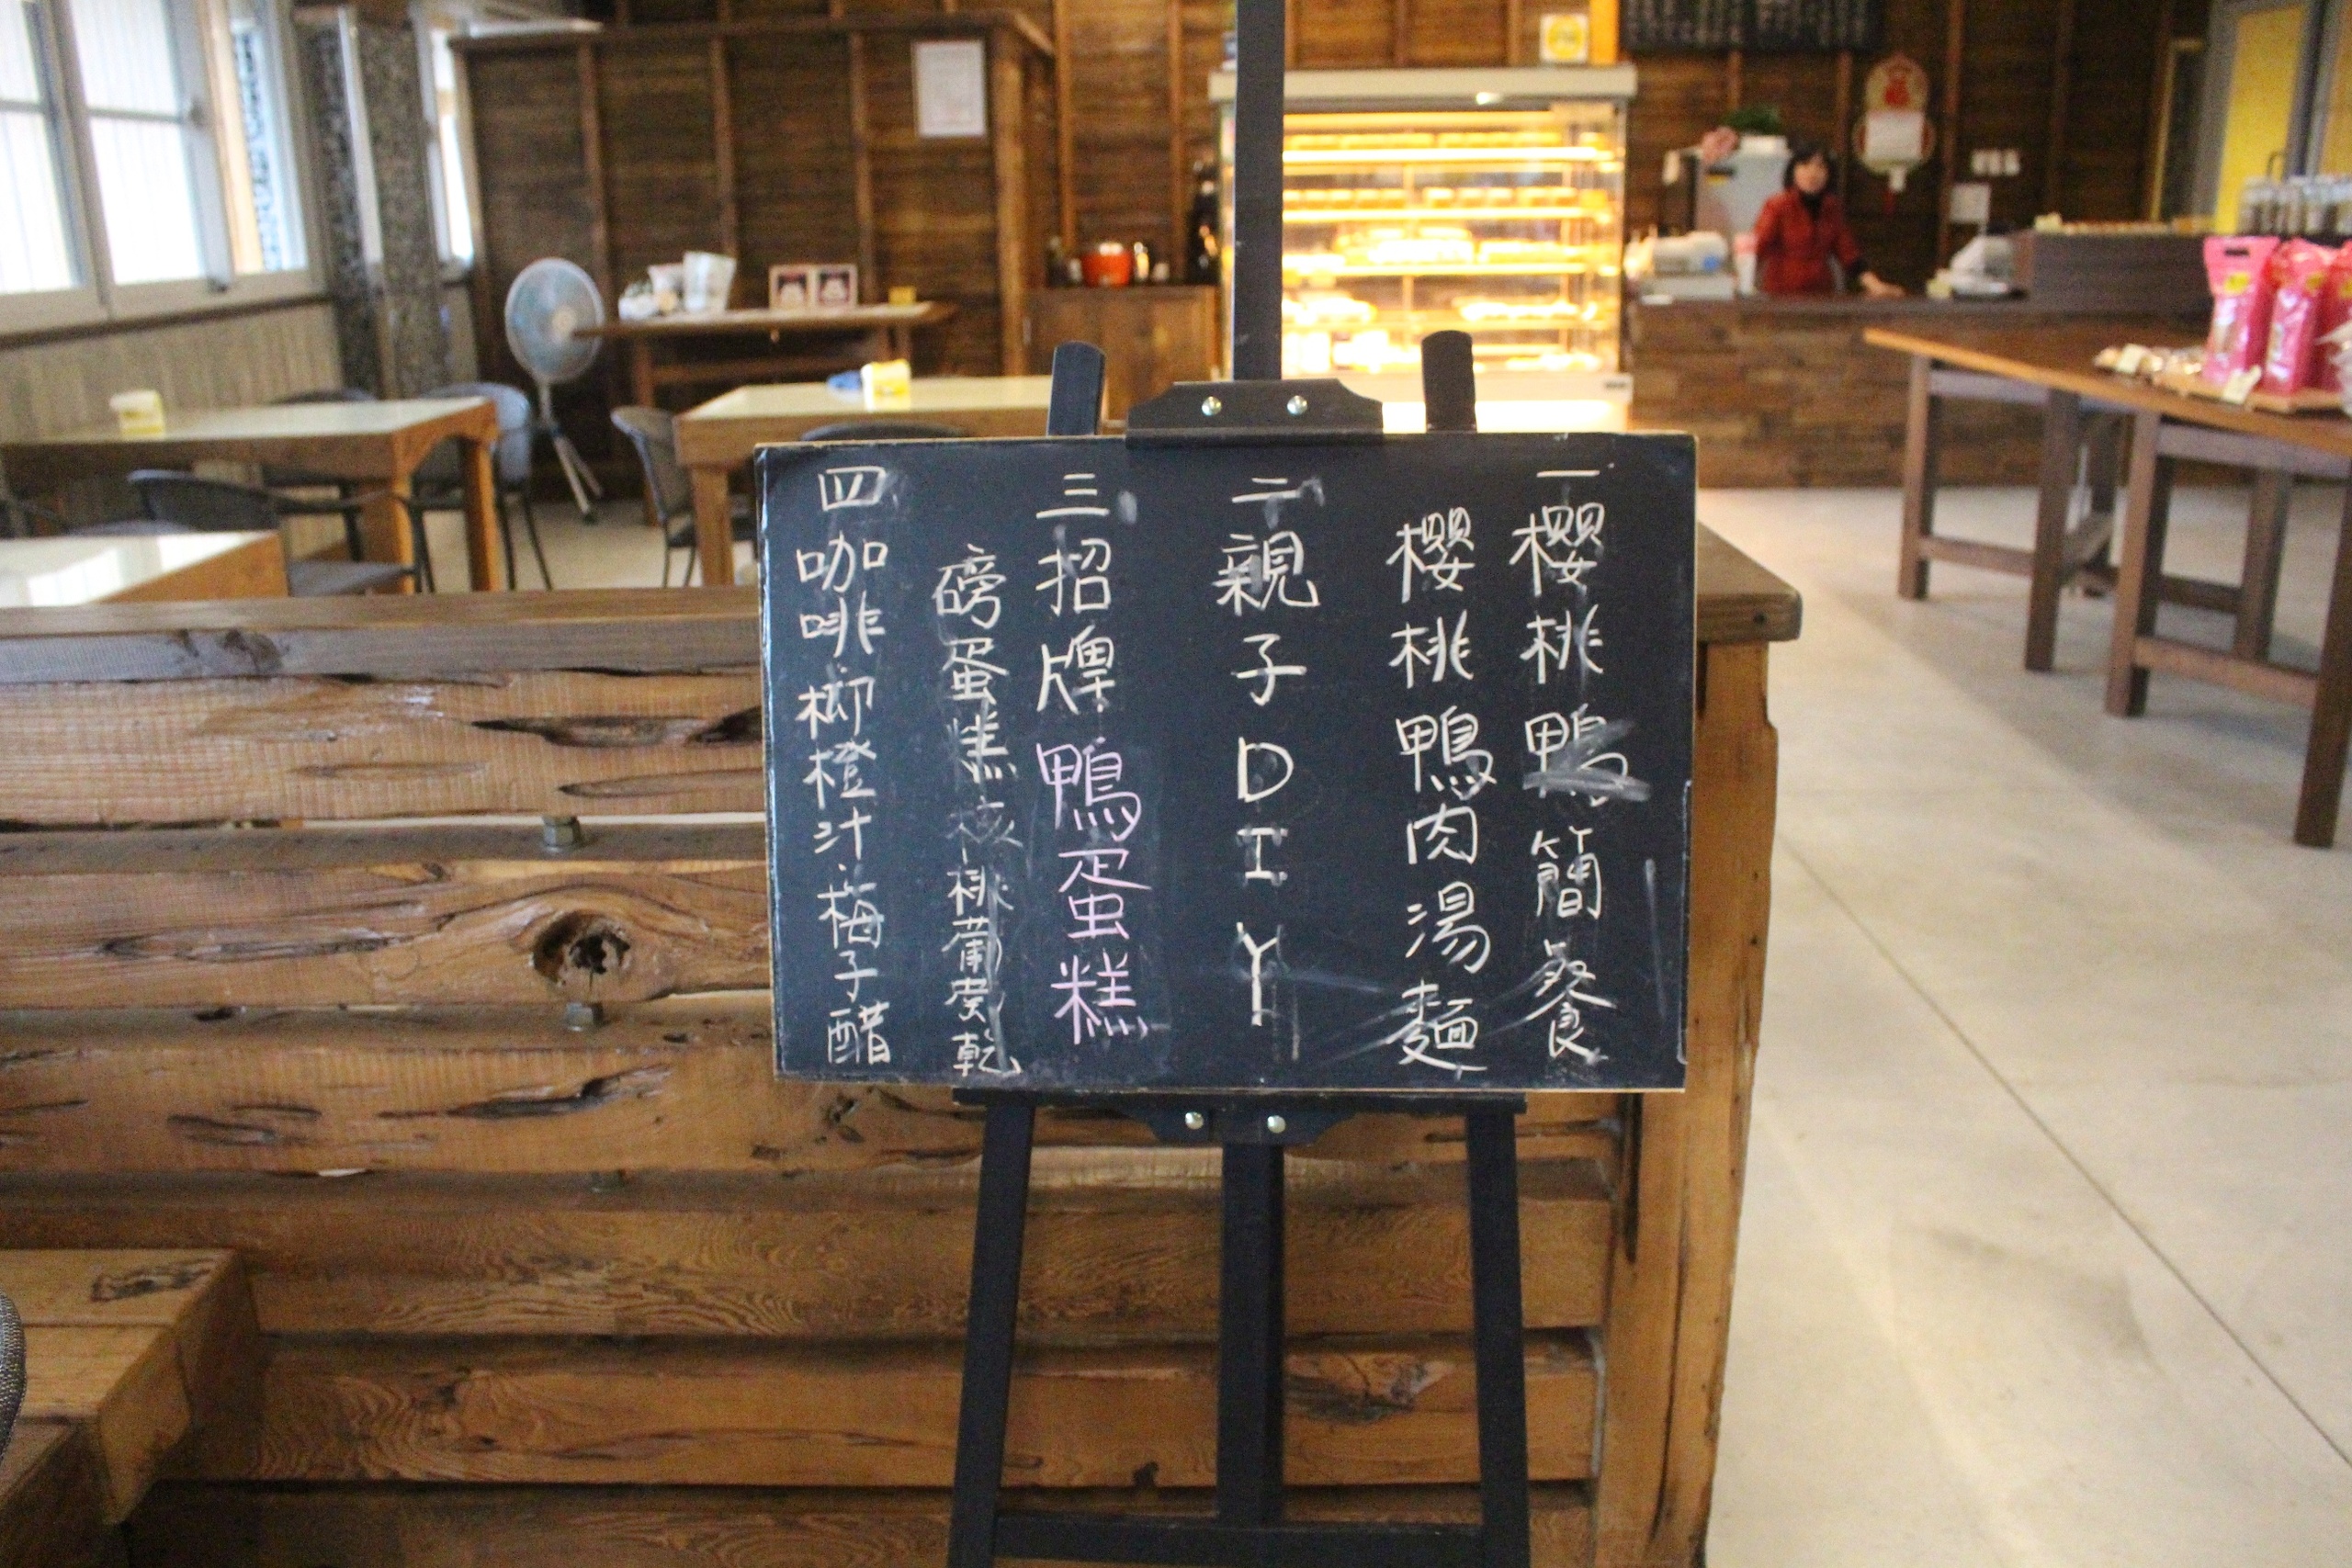 一櫻桃鴨簡餐
櫻桃鴨肉湯麵
二親子DIY
三招牌鴨蛋糕
磅蛋糕核桃葡萄乾
四咖啡.柳橙汁.梅子醋